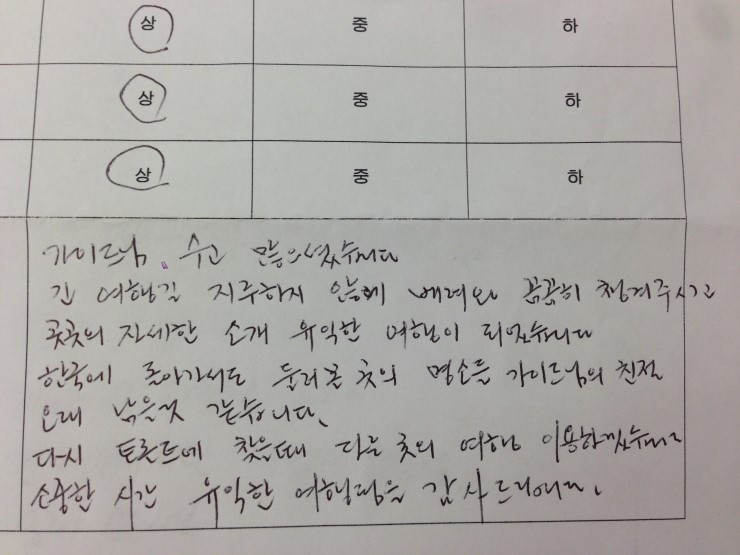 상 중 하
상 중 하
상 중 하
가이드님. 수고 많으셨습니다
긴 여행길 지루하지 않게 배려와 꼼꼼히 챙겨주시고
곳곳의 자세한 소개 유익한 여행이 되었습니다
한국에 돌아가서도 둘러본 곳의 명소를 가이드님의 친절
오래 남을것 같습니다.
다시 토론토에 찾을때 다른 곳의 여행 이용하겠습니다
소중한 시간 유익한 여행 감사드려요.